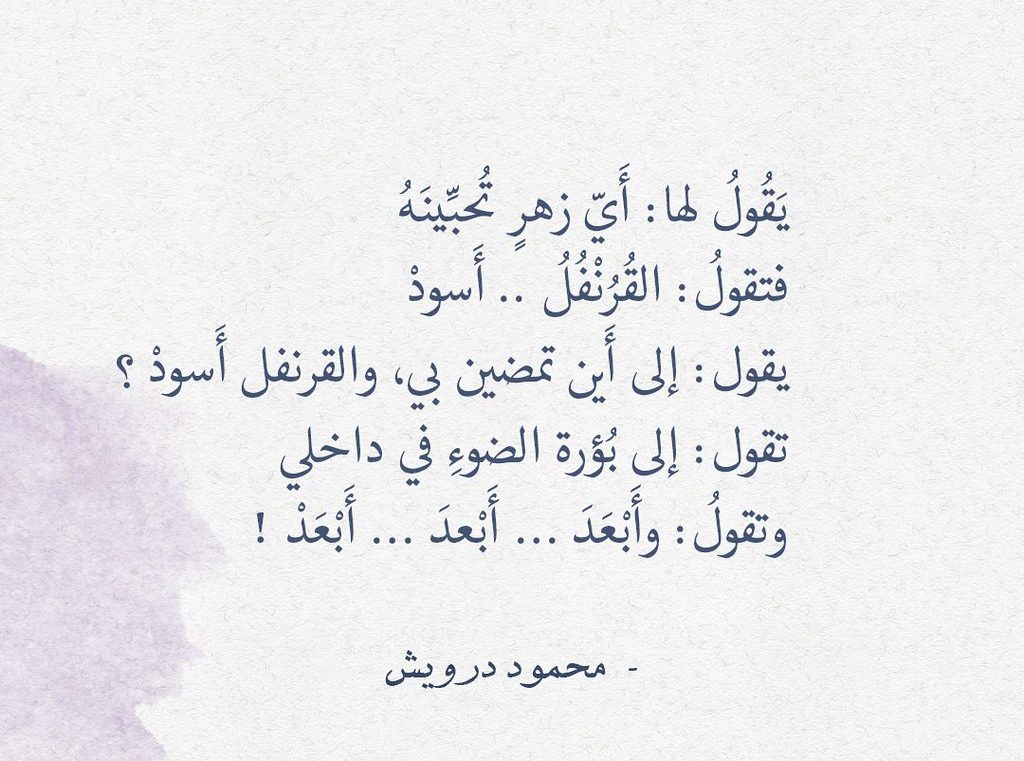 يَقُولُ لها: أَيّ زهرٍ تُحبِّينَهُ
فتقولُ: القُرُنْفُلُ .. أَسودْ
يقول: إلى أَين تمضين بي، والقرنفل أَسودْ ؟
تقول: إلى بُؤرة الضوءِ في داخلي
وتقولُ: وأَبْعَدَ ... أَبْعدَ ... أَبْعَدْ !
- محمود درويش